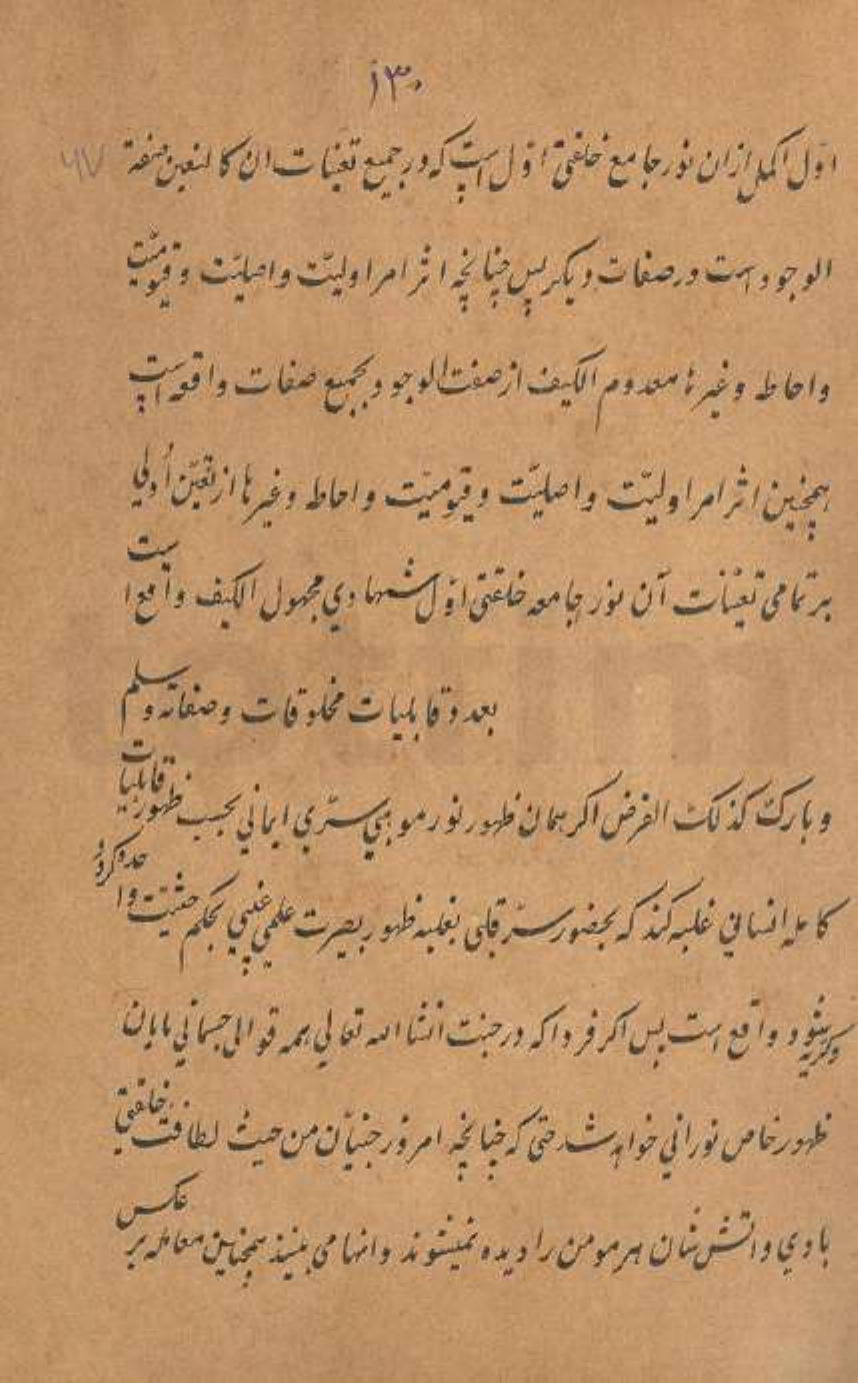 ۱۳۰
اوّل اکمل ازان نور جامع خلقتی اوّل است که در جمیع تعینات ان کالتعین صفة
۶۷
الوجود است در صفات دیکر پس چنانچه اثر امر اولیّت واصلیّت وقیومیّت
واحاطه وغیرها معدوم الکیف از صفت الوجود بجمیع صفات واقعه است
همچنین اثر امر اولیّت واصلیّت وقیومیّت واحاطه وغیرها از تعیّن اُولی
بر تمامی تعیّنات آن نور جامعه خلقتی اوّل شهادی مجهول الکیف واقع است
بعد وقابلیات مخلوقات وصفاته وسلم
وبارک کذلک الغرض اکر همان ظهور نور موهبی سرّی ایمانی بحسب ظهور قابلیات
کامله انسانی غلبه کند که بحضور سرّ قلبی بغلبه ظهور بصیرت علمی غیبی بحکم حیثیّت
واقع است پس اکر فردا که در جنت انشا الله تعالی همه قوالی جسمانی مایان
ظهور خاص نورانی خواهد شد حتی که چنانچه امروز جنیّان من حیث لطافت خلقتی
بادی واتشی شان هر مومن را دیده نمیشوند وانها می بینند همچنین معامله بر عکس